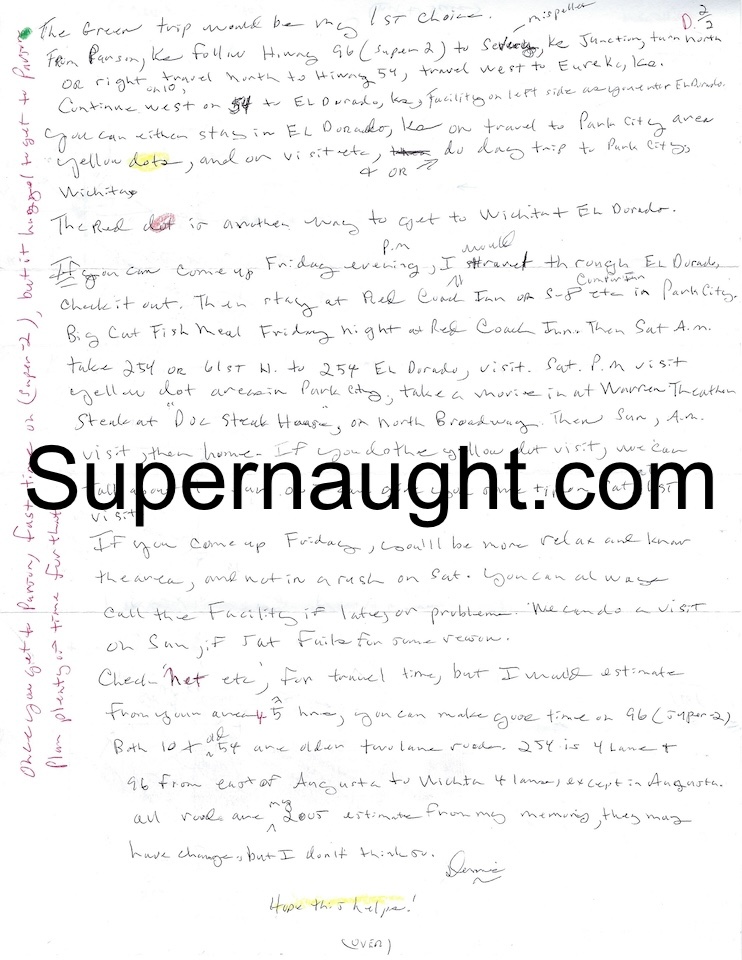 The Green trip would be my 1st choice.
misspelled
D. 2/2
From Parson, Ks follow Hiway 96 (Super 2) to Severy, Ks Junction, turn north
or right on 10, travel north to Hiway 54, travel west to Eureka, Ks.
Continue west on 54 to El Dorado, Ks, Facility on left side as you enter El Dorado.
You can either stay in El Dorado, Ks or travel to Park City area
yellow dots, and or visit etc, & or do day trip to Park City,
Wichita
The Red dot is another way to get to Wichita & El Dorado.
If you can come up Friday evening, p.m I would travel through El Dorado,
check it out. Then stay at Red Coach Inn or S-8 Comfor Inn etc in Park City.
Big Cat Fish Meal Friday night at Red Coach Inn. Then Sat A.m.
take 254 or 61st N. to 254 El Dorado, visit. Sat. P.m visit
yellow dot areas in Park City, take a movie in at Warren Theather
Steak at "Doc Steak House", on North Broadway. Then Sun, A.m.
visit, then home. If you do the yellow dot visit, we can
Supernaught.com
visit
If you come up Friday, you'll be more relax and know
the area, and not in a rush on Sat. You can always
call the Facility if late, or problems. We can do a visit
on Sun, if Sat Fails for some reason.
Check 'net etc', for travel time, but I would estimate
from your area 4 ^ 5 hrs, you can make good time on 96 (super-2)
Both 10 & old 54 are older two lane roads. 254 is 4 lane &
96 from east of Augusta to Wichta 4 lanes, except in Augusta.
all roads are my 2005 estimate from my memory, they may
have change, but I don't think so.
Dennis
Hope this helps!
(over)
Once you get to Parson, fast time on (super-2), but it hugged to get to Parson
Plan plenty of time for that